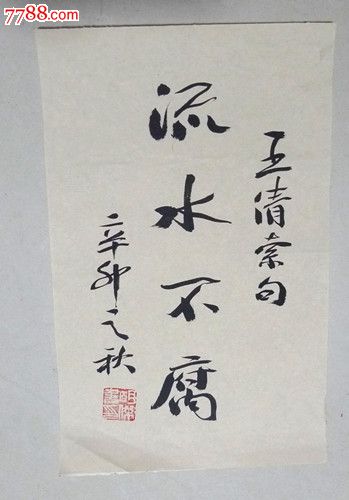 7788.com
王清索句
流水不腐
辛卯之秋